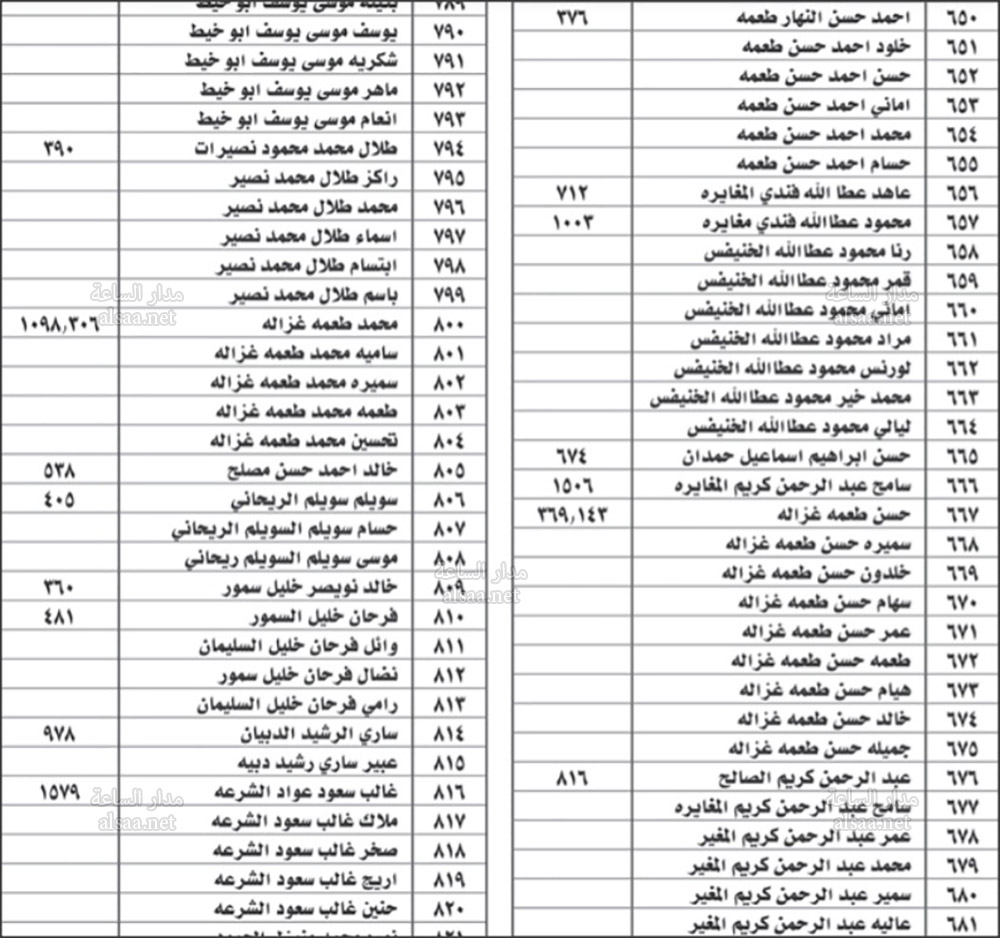 ٦٥٠ احمد حسن النهار طعمه ٣٧٦
٦٥١ خلود احمد حسن طعمه
٦٥٢ حسن احمد حسن طعمه
٦٥٣ اماني احمد حسن طعمه
٦٥٤ محمد احمد حسن طعمه
٦٥٥ حسام احمد حسن طعمه
٦٥٦ عاهد عطا الله فندي المغايره ٧١٢
٦٥٧ محمود عطاالله فندي مغايره ١٠٠٣
٦٥٨ رنا محمود عطاالله الخنيفس
٦٥٩ قمر محمود عطاالله الخنيفس
٦٦٠ اماني محمود عطاالله الخنيفس
٦٦١ مراد محمود عطاالله الخنيفس
٦٦٢ لورنس محمود عطاالله الخنيفس
٦٦٣ محمد خير محمود عطاالله الخنيفس
٦٦٤ ليالي محمود عطاالله الخنيفس
٦٦٥ حسن ابراهيم اسماعيل حمدان ٦٧٤
٦٦٦ سامح عبد الرحمن كريم المغايره ١٥٠٦
٦٦٧ حسن طعمه غزاله ٣٦٩,١٤٣
٦٦٨ سميره حسن طعمه غزاله
٦٦٩ خلدون حسن طعمه غزاله
٦٧٠ سهام حسن طعمه غزاله
٦٧١ عمر حسن طعمه غزاله
٦٧٢ طعمه حسن طعمه غزاله
٦٧٣ هيام حسن طعمه غزاله
٦٧٤ خالد حسن طعمه غزاله
٦٧٥ جميله حسن طعمه غزاله
٦٧٦ عبد الرحمن كريم الصالح ٨١٦
٦٧٧ سامح عبد الرحمن كريم المغايره
٦٧٨ عمر عبد الرحمن كريم المغير
٦٧٩ محمد عبد الرحمن كريم المغير
٦٨٠ سمير عبد الرحمن كريم المغير
٦٨١ عاليه عبد الرحمن كريم المغير
٧٨٩ موسى يوسف ابو خيط
٧٩٠ يوسف موسى يوسف ابو خيط
٧٩١ شكريه موسى يوسف ابو خيط
٧٩٢ ماهر موسى يوسف ابو خيط
٧٩٣ انعام موسى يوسف ابو خيط
٧٩٤ طلال محمد محمود نصيرات ٣٩٠
٧٩٥ راكز طلال محمد نصير
٧٩٦ محمد طلال محمد نصير
٧٩٧ اسماء طلال محمد نصير
٧٩٨ ابتسام طلال محمد نصير
٧٩٩ باسم طلال محمد نصير
٨٠٠ محمد طعمه غزاله ١٠٩٨,٣٠٦
٨٠١ ساميه محمد طعمه غزاله
٨٠٢ سميره محمد طعمه غزاله
٨٠٣ طعمه محمد طعمه غزاله
٨٠٤ تحسين محمد طعمه غزاله
٨٠٥ خالد احمد حسن مصلح ٥٣٨
٨٠٦ سويلم سويلم الريحاني ٤٠٥
٨٠٧ حسام سويلم السويلم الريحاني
٨٠٨ موسى سويلم السويلم ريحاني
٨٠٩ خالد نويصر خليل سمور ٣٦٠
٨١٠ فرحان خليل السمور ٤٨١
٨١١ وائل فرحان خليل السليمان
٨١٢ نضال فرحان خليل سمور
٨١٣ رامي فرحان خليل السليمان
٨١٤ ساري الرشيد الدبيان ٩٧٨
٨١٥ عبير ساري رشيد دبيه
٨١٦ غالب سعود عواد الشرعه ١٥٧٩
٨١٧ ملاك غالب سعود الشرعه
٨١٨ صخر غالب سعود الشرعه
٨١٩ اريج غالب سعود الشرعه
٨٢٠ حنين غالب سعود الشرعه
٨٢١
مدار الساعة
alsaa.net
مدار الساعة
alsaa.net
مدار الساعة
alsaa.net
مدار الساعة
alsaa.net
مدار الساعة
alsaa.net